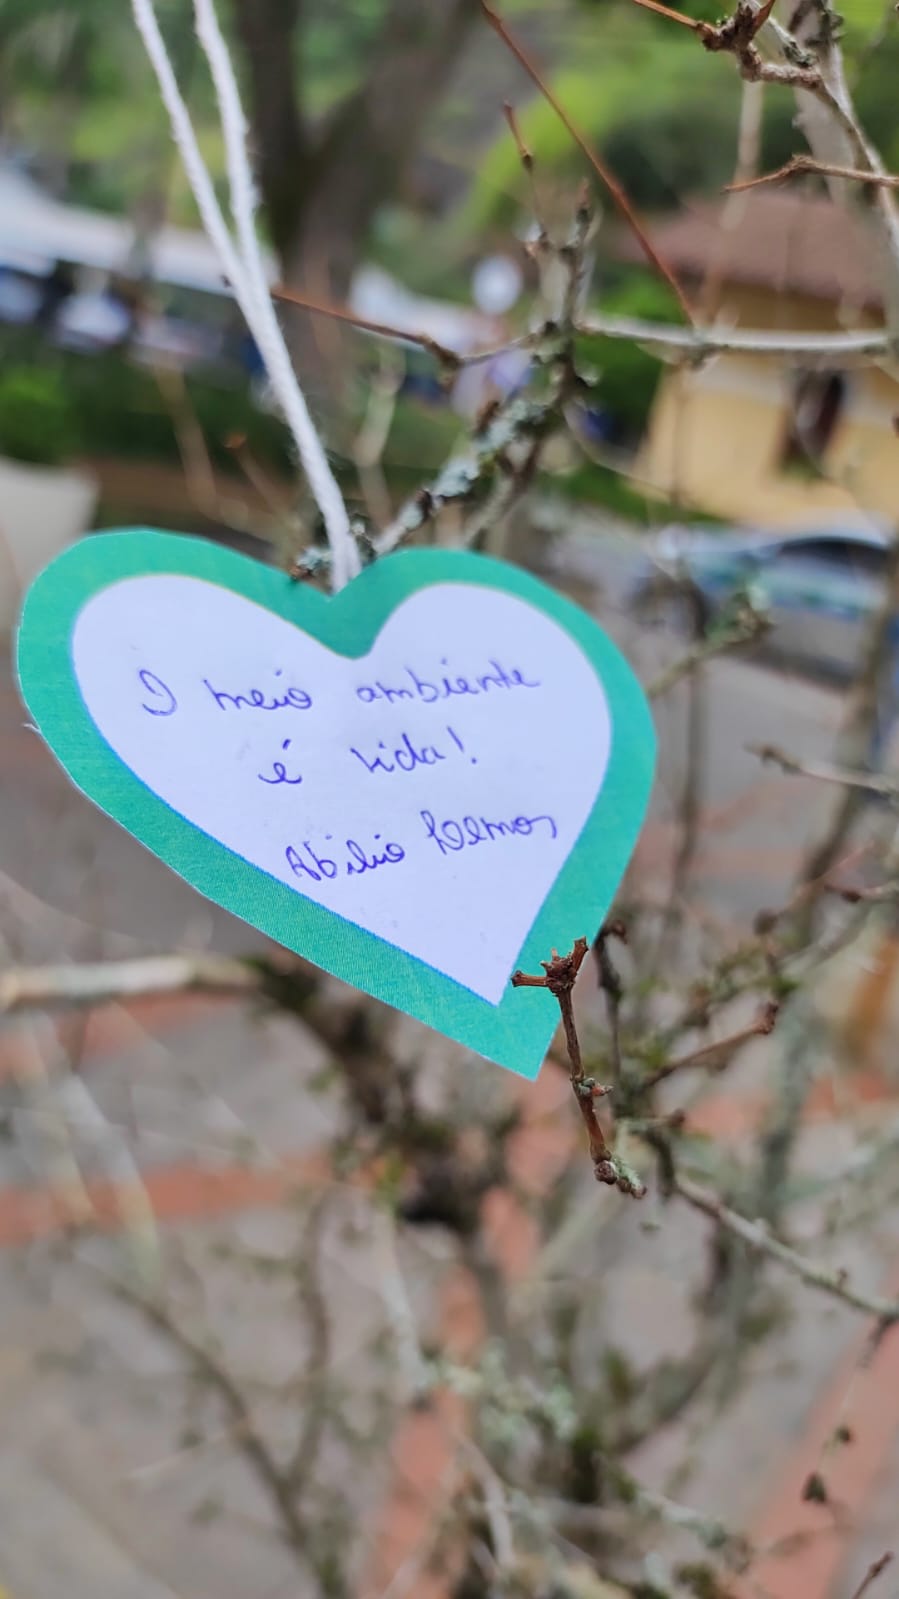 O meio ambiente
é vida!
Abílio Lemos